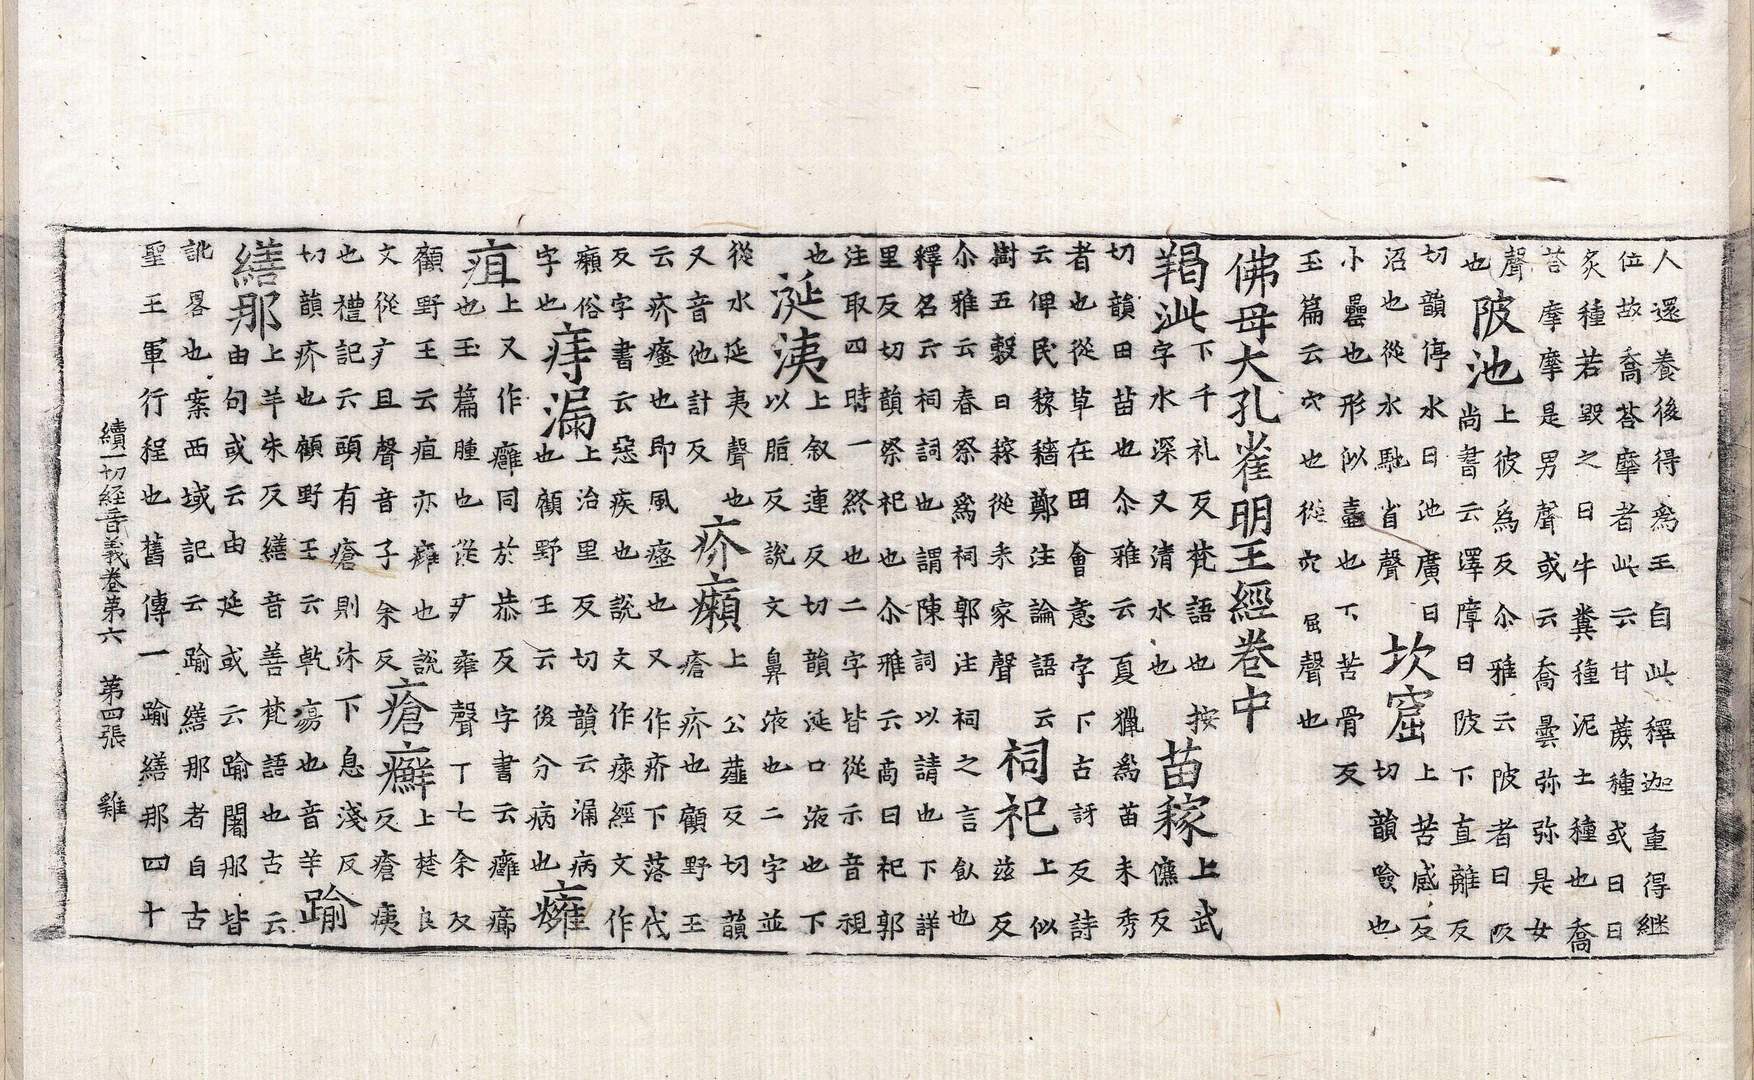 人還養後得爲王自此釋迦重得継
位故喬荅摩者此云甘蔗種或曰日
炙種若毀之曰牛糞種泥土種也喬
荅摩摩是男聲或云喬曇弥弥是女
聲
也
陂池
上彼爲反尒雅云陂者曰阪
尚書云澤障曰陂下直離反
切韻停水曰池廣曰
沼也從水馳省聲
坎窟
上苦感反
切韻噞也
小罍也形似壷也下苦骨反
玉篇云穴也從穴屈聲也
佛母大孔雀明王經卷中
羯泚
下千礼反梵語也按
字水深又清水也
苗稼
上武
儦反
切韻田苗也尒雅云夏獵爲苗未秀
者也從草在田會意字下古訝反詩
云俾民稼穡鄭注論語云
樹五穀曰稼從禾家聲
祠祀
上似
兹反
尒雅云春祭爲祠郭注祠之言飤也
釋名云祠詞也謂陳詞以請也下詳
里反切韻祭祀也尒雅云商曰祀郭
注取四時一終也二字皆從示音視
也
涎洟
上叙連反切韻涎口液也下
以脂反說文鼻液也二字並
從水延夷聲也
又音他計反
疥癩
上公薤反切韻
瘡疥也顧野王
云疥瘙也即風瘙也又作疥下落代
反字書云惡疾也說文作瘶經文作
癩俗
字也
痔漏
上治里反切韻云漏病
也顧野王云後分病也
癰
疽
上又作癕同於恭反字書云癰癤
也玉篇腫也從疒雍聲下七余反
顧野王云疽亦癰也說
文從疒且聲音子余反
瘡癬
上楚良
反瘡痍
也禮記云頭有瘡則沐下息淺反
切韻疥也顧野王云乾瘍也音羊
踰
繕那
上羊朱反繕音善梵語也古云
由旬或云由延或云踰闍那皆
訛畧也案西域記云踰繕那者自古
聖王軍行程也舊傳一踰繕那四十
續一切經音義卷第六 第四張 雞